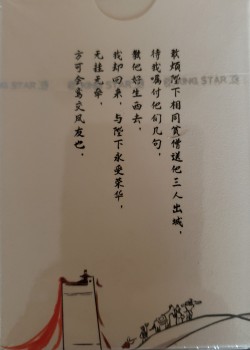 敢烦陛下相同贫僧送他三人出城，
待我嘱付他们几句，
教他好生西去，
我却回来，与陛下永受荣华，
无挂无牵，
方可会鸾交凤友也。